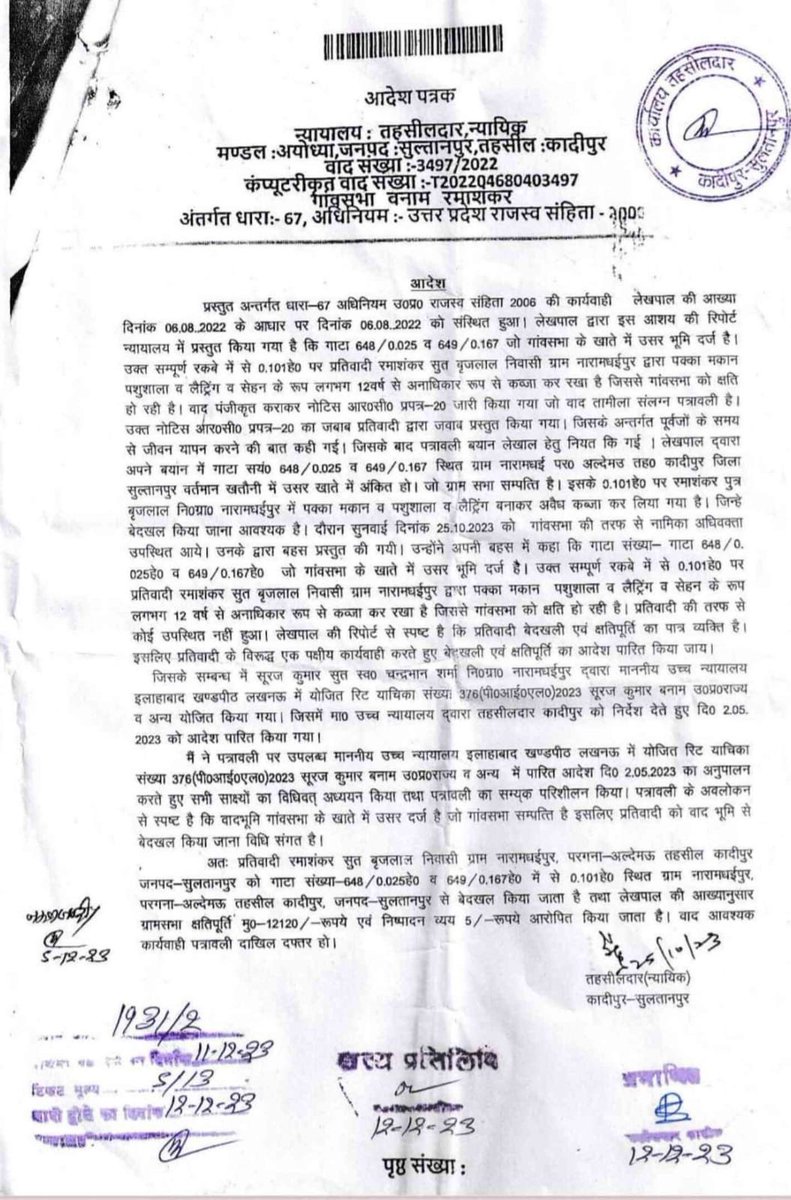 आदेश पत्रक
न्यायालय : तहसीलदार,न्यायिक
मण्डल :अयोध्या,जनपद :सुल्तानपुर,तहसील :कादीपुर
वाद संख्या :-3497/2022
कंप्यूटरीकृत वाद संख्या :-T202204680403497
गांवसभा बनाम रमाशंकर
अंतर्गत धारा:- 67, अधिनियम :- उत्तर प्रदेश राजस्व संहिता -
कार्यालय तहसीलदार
कादीपुर-सुलतानपुर
आदेश
प्रस्तुत अन्तर्गत धारा-67 अधिनियम उ०प्र० राजस्व संहिता 2006 की कार्यवाही लेखपाल की आख्या
दिनांक 06.08..2022 के आधार पर दिनांक 06.08..2022 को संस्थित हुआ। लेखपाल द्वारा इस आशय की रिपोर्ट
न्यायालय में प्रस्तुत किया गया है कि गाटा 648/0.025 व 649/0.167 जो गांवसभा के खाते में उसर भूमि दर्ज है।
उक्त सम्पूर्ण रकबे में से 0.101हे० पर प्रतिवादी रमाशंकर सुत बृजलाल निवासी ग्राम नारामधईपुर द्वारा पक्का मकान
पशुशाला व लैट्रिंग व सेहन के रूप लगभग 12वर्ष से अनाधिकार रूप से कब्जा कर रखा है जिससे गांवसभा को क्षति
हो रही है। वाद पंजीकृत कराकर नोटिस आर०सी० प्रपत्र-20 जारी किया गया जो वाद तामीला संलग्न पत्रावली है।
उक्त नोटिस आर०सी० प्रपत्र-20 का जबाब प्रतिवादी द्वारा जवाब प्रस्तुत किया गया। जिसके अन्तर्गत पूर्वजों के समय
से जीवन यापन करने की बात कही गई। जिसके बाद पत्रावली बयान लेखाल हेतु नियत कि गई । लेखपाल द्वारा
अपने बयांन में गाटा सयं० 648/0.025 व 649/0.167 स्थित ग्राम नारामधई पर० अल्देमउ तह० कादीपुर जिला
सुल्तानपुर वर्तमान खतौनी में उसर खाते में अंकित हो। जो ग्राम सभा सम्पत्ति है। इसके 0.101हे० पर रमाशंकर पुत्र
बृजलाल नि०ग्रा० नारामधईपुर में पक्का मकान व पशुशाला व लैट्रिंग बनाकर अवैध कब्जा कर लिया गया है। जिन्हे
बेदखल किया जाना आवश्यक है। दौरान सुनवाई दिनांक 25.10.2023 को गांवसभा की तरफ से नामिका अधिवक्ता
उपस्थित आये। उनके द्वारा बहस प्रस्तुत की गयी। उन्होंने अपनी बहस में कहा कि गाटा संख्या- गाटा 648/0.
025हे० व 649/0.167हे० जो गांवसभा के खाते में उसर भूमि दर्ज है। उक्त सम्पूर्ण रकबे में से 0.101हे० पर
प्रतिवादी रमाशंकर सुत बृजलाल निवासी ग्राम नारामधईपुर द्वारा पक्का मकान पशुशाला व लैट्रिंग व सेहन के रूप
लगभग 12 वर्ष से अनाधिकार रूप से कब्जा कर रखा है जिससे गांवसभा को क्षति हो रही है। प्रतिवादी की तरफ से
कोई उपस्थित नहीं हुआ। लेखपाल की रिपोर्ट से स्पष्ट है कि प्रतिवादी बेदखली एवं क्षतिपूर्ति का पात्र व्यक्ति है।
इसलिए प्रतिवादी के विरूद्ध एक पक्षीय कार्यवाही करते हुए बेदखली एवं क्षतिपूर्ति का आदेश पारित किया जाय।
जिसके सम्बन्ध में सूरज कुमार सुत स्व० चन्द्रभान शर्मा नि०ग्रा० नारामधईपुर द्वारा माननीय उच्च न्यायालय
इलाहाबाद खण्डपीठ लखनऊ में योजित रिट याचिका संख्या 376(पी०आई०एल०)2023 सूरज कुमार बनाम उ०प्र०राज्य
व अन्य योजित किया गया। जिसमें मा० उच्च न्यायालय द्वारा तहसीलदार कादीपुर को निर्देश देते हुए दि० 2.05.
2023 को आदेश पारित किया गया।
मैं ने पत्रावली पर उपलब्ध माननीय उच्च न्यायालय इलाहाबाद खण्डपीठ लखनऊ में योजित रिट याचिका
संख्या 376(पी०आई०एल०)2023 सूरज कुमार बनाम उ०प्र०राज्य व अन्य में पारित आदेश दि० 2.05.2023 का अनुपालन
करते हुए सभी साक्ष्यों का विधिवत् अध्ययन किया तथा पत्रावली का सम्यक परिशीलन किया। पत्रावली के अवलोकन
से स्पष्ट है कि वादभूमि गांवसभा के खाते में उसर दर्ज है जो गांवसभा सम्पत्ति है इसलिए प्रतिवादी को वाद भूमि से
बेदखल किया जाना विधि संगत है।
अतः प्रतिवादी रमाशंकर सुत बृजलाल निवासी ग्राम नारामधईपुर, परगना-अल्देमऊ तहसील कादीपुर
जनपद-सुलतानपुर को गाटा संख्या-648/0.025हे० व 649/0.167हे० में से 0.101हे० स्थित ग्राम नारामधईपुर,
परगना-अल्देमऊ तहसील कादीपुर, जनपद-सुलतानपुर से बेदखल किया जाता है तथा लेखपाल की आख्यानुसार
ग्रामसभा क्षतिपूर्ति मु०-12120/-रूपये एवं निष्पादन व्यय 5/-रूपये आरोपित किया जाता है। वाद आवश्यक
कार्यवाही पत्रावली दाखिल दफ्तर हो।
5-12-23
25/10/23
तहसीलदार(न्यायिक)
कादीपुर-सुलतानपुर
1931/2
दिनांक 11-12-23
टिकट मूल्य 5/13
का दिनांक 12-12-23
सत्य प्रतिलिपि
12-12-23
प्रमाणित
12-12-23
पृष्ठ संख्या :